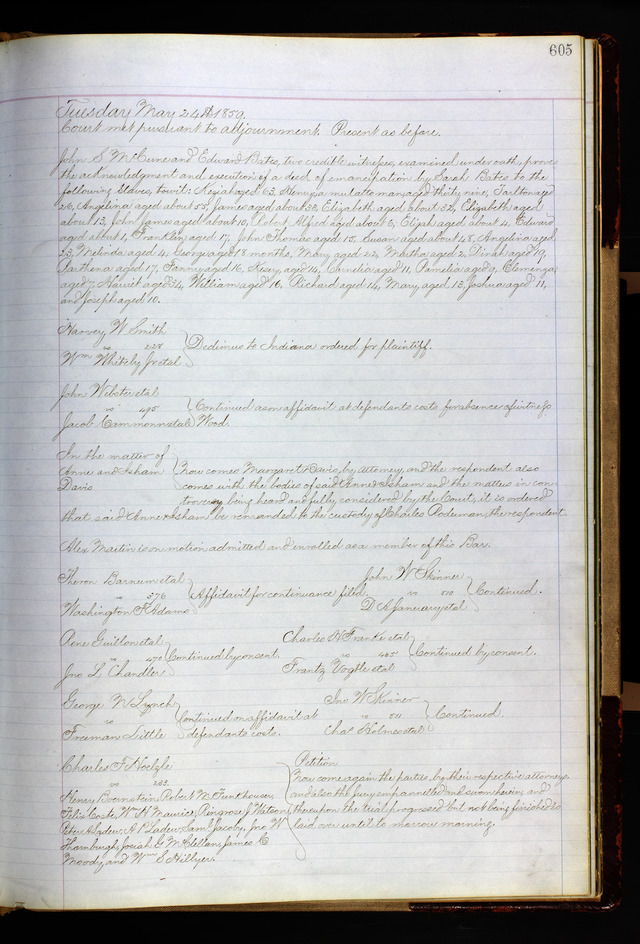 605
Tuesday May 24th 1859.
Court met pursuant to adjournment. Present as before.
John S. McCune and Edward Bates, two credible witnesses, examined under oath, prove
the acknowledgment and execution of a deed of emancipation by Sarah Bates to the
following Slaves, towit: Kesiah aged 63, a mulatto man aged thirty nine, Tarlton aged
26, Angelina aged about 55, James about 32, Elizabeth aged about 32, Elizabeth aged
about 13, John James aged about 10, Robert Alfred aged about 8, Elijah aged about 4, Edward
aged about 1, Franklin aged 17, John Thomas aged 15, Susan aged about 48, Angelina aged
23, Melinda aged 4, George aged 18 months, Mary aged 22, Martha aged 2, Dinah aged 19,
Parthena aged 17, Fanney aged 16, aged 14, Cornelia aged 11, Pamelia aged 9,
aged 7, aged 34, William aged 16, Richard aged 14, Mary, aged 13, Joshua aged 11,
and Joseph aged 10.
Harvey W Smith
vs 228 Dedimus to Indiana ordered for plaintiff.
Wm Whitely Jr et al
John Webster et al
vs 495 Continued as on affidavit at defendants costs for absence of witness
Jacob Cammonn et als Wood.
In the matter of
Anne and Isham Now comes Margaret Davis, by attorney, and the respondent also
Davis comes with the bodies of said Anne & Isham and the matters in con
troversy being heard and fully considered by the Court, it is ordered
that said Anne & Isham be remanded to the custody of Charles the respondent.
Alex Martin is on motion admitted and enrolled as a member of this Bar.
Theron Barnum et al
vs 376 Affidavit for continuance filed.
Washington F Adams
John W Skinner
vs 510 Continued.
D A January et al
Rene Guillon et al
vs 470 Continued by consent.
Jno L Chandler
Charles H Franke et al
vs 485 Continued by consent.
Frantz Vogtle et al
George W Lynch
vs Continued on affidavit at
Freeman Little defendants costs.
Jno W Skinner
vs 511 Continued.
Chas Holmes et al
Charles F Hoelzle Petition
vs 283 Now come again the parties, by their respective attorneys
Henry Boernstein, Robert M. Funkhouser, and also the jury empannelled and sworn herein, and
Felix Coste, Wm H Maurice, Ringrose J Watson, thereupon the trial progressed but not being finished is
Peter A Ladew, A P Ladew, Saml Jacoby, Jno W laid over until to morrow morning.
Thornburgh, Josiah G McClellan, James C
Moody, and Wm S Hillyer.